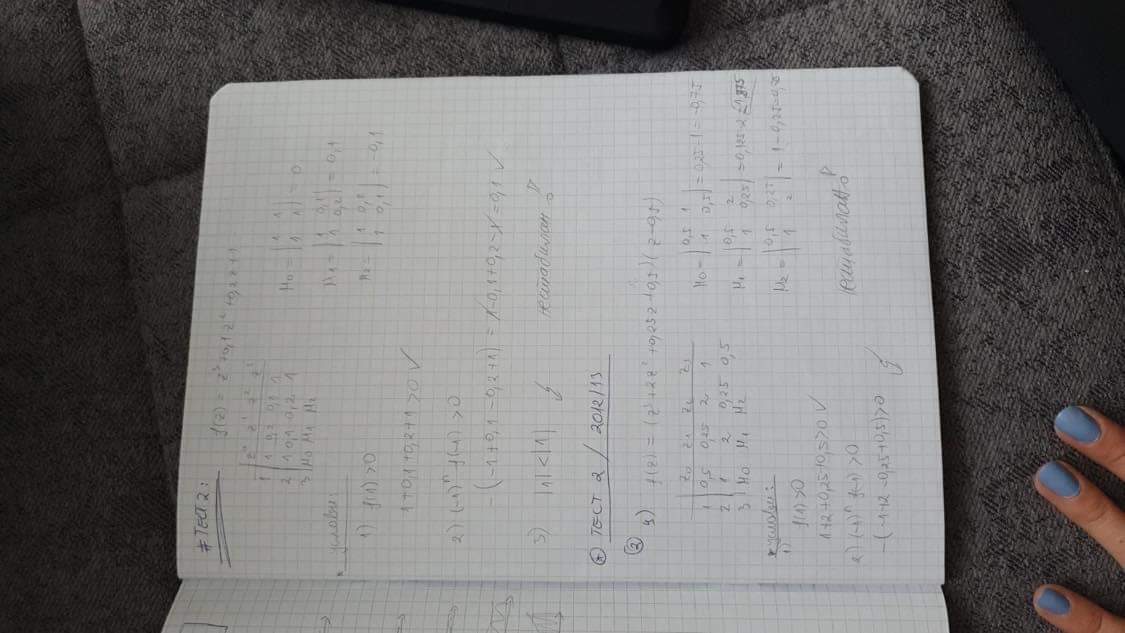 # ТЕСТ 2:
f(z) = z³+0,1z²+0,2z+1
z⁰ z¹ z² z³
1 | 1 0,2 0,1 1
2 | 1 0,1 0,2 1
3 | M0 M1 M2
M0 = |1 1; 1 1| = 0
M1 = |1 0,1; 1 0,2| = 0,1
M2 = |1 0,2; 1 0,1| = -0,1
* услови:
1) f(1) >0
1+0,1+0,2+1 >0 ✓
2) (-1)ⁿ f(-1) >0
-(-1+0,1-0,2+1) = 1-0,1+0,2-1 = 0,1 ✓
3) |1| < |1|
нестабилан
* ТЕСТ 2 / 2012/13
②
f(z) = (z³+2z²+0,25z+0,5)(z-0,5)
z0 z1 z2 z3
1 | 0,5 0,25 2 1
2 | 1 2 0,25 0,5
3 | M0 M1 M2
M0 = |0,5 1; 1 0,5| = 0,25-1 = -0,75
M1 = |0,5 2; 1 0,25| = 0,125-2 = -1,875
M2 = |0,5 0,25; 1 2| = 1-0,25=0,75
* услови:
1) f(1) >0
1+2+0,25+0,5>0 ✓
2) (-1)ⁿ f(-1) >0
-(-1+2-0,25+0,5)>0